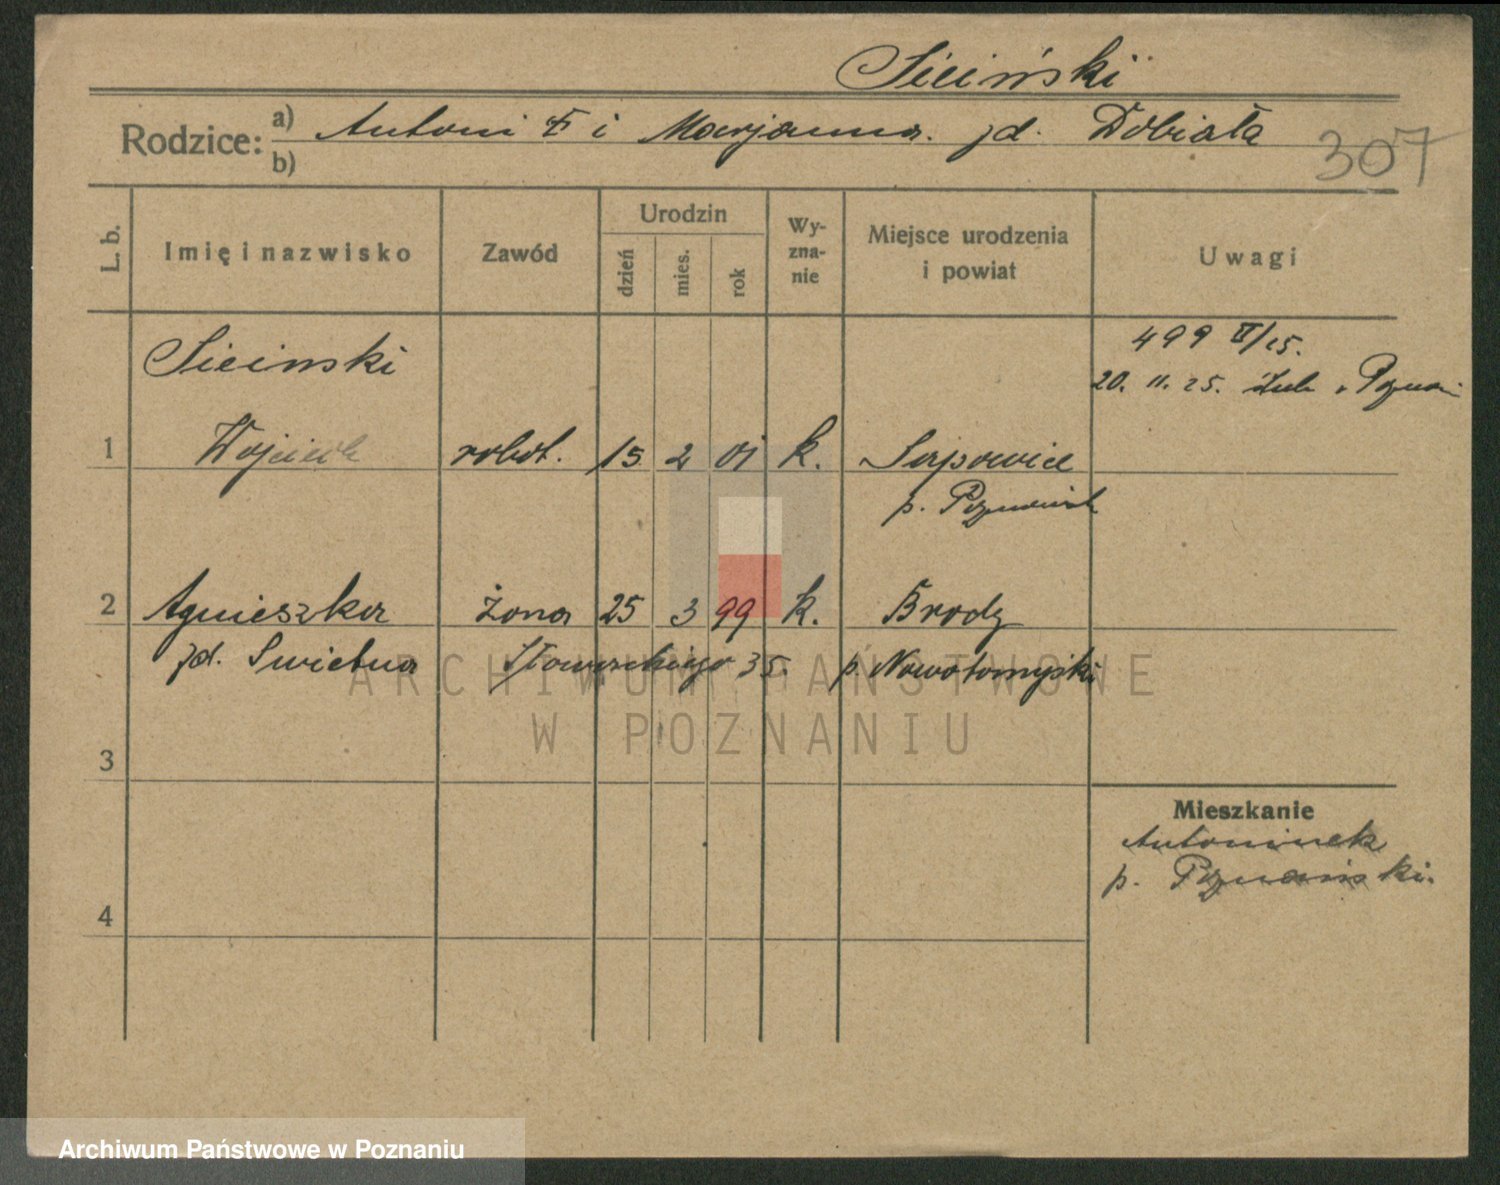 Siciński
Rodzice: a) Antoni † i Marjanna zd. Dobiała
b)
307
L. b.
Imię i nazwisko
Zawód
Urodzin
dzień
mies.
rok
Wy-
zna-
nie
Miejsce urodzenia
i powiat
Uwagi
Siciński
499 II/25.
20. 11. 25. Poznań
1 Wojciech robot. 15 2 01 k.
p. Poznańsk
2 Agnieszka żona 25 3 99 k. Brody
zd. Swietna Słowackiego 35. p. Nowotomyski
ARCHIWUM PAŃSTWOWE
W POZNANIU
3
Mieszkanie
Antoninek
p. Poznański.
4
Archiwum Państwowe w Poznaniu